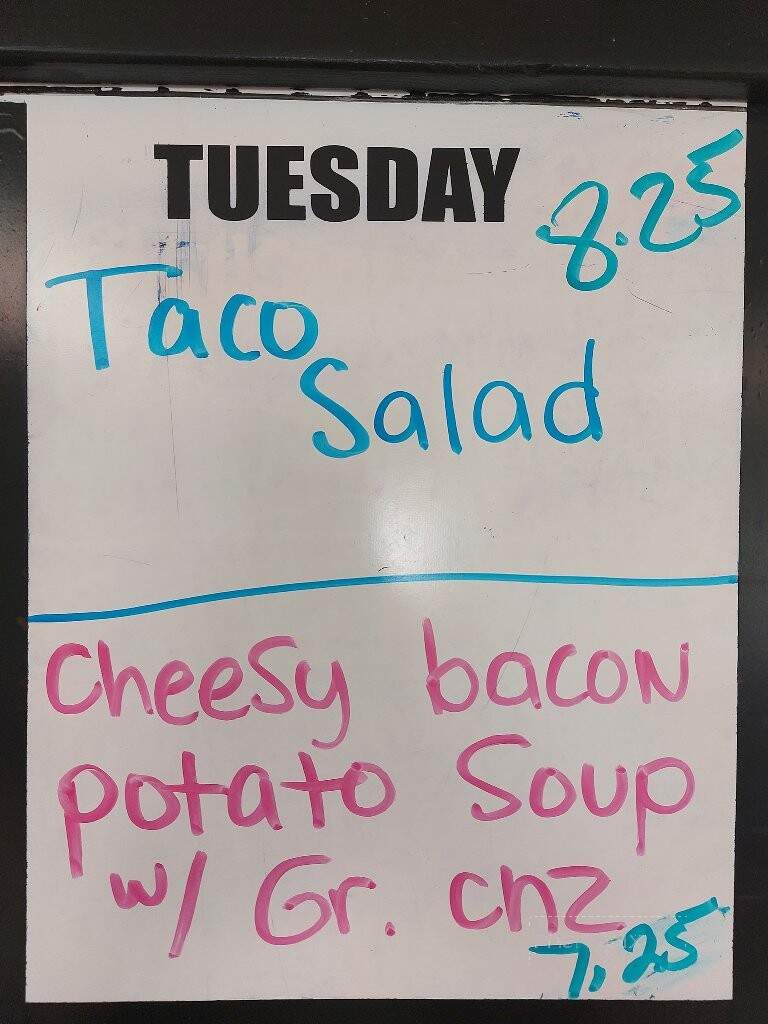 TUESDAY
8.25
Taco
Salad
Cheesy bacon
potato Soup
w/ Gr. chz
7.25